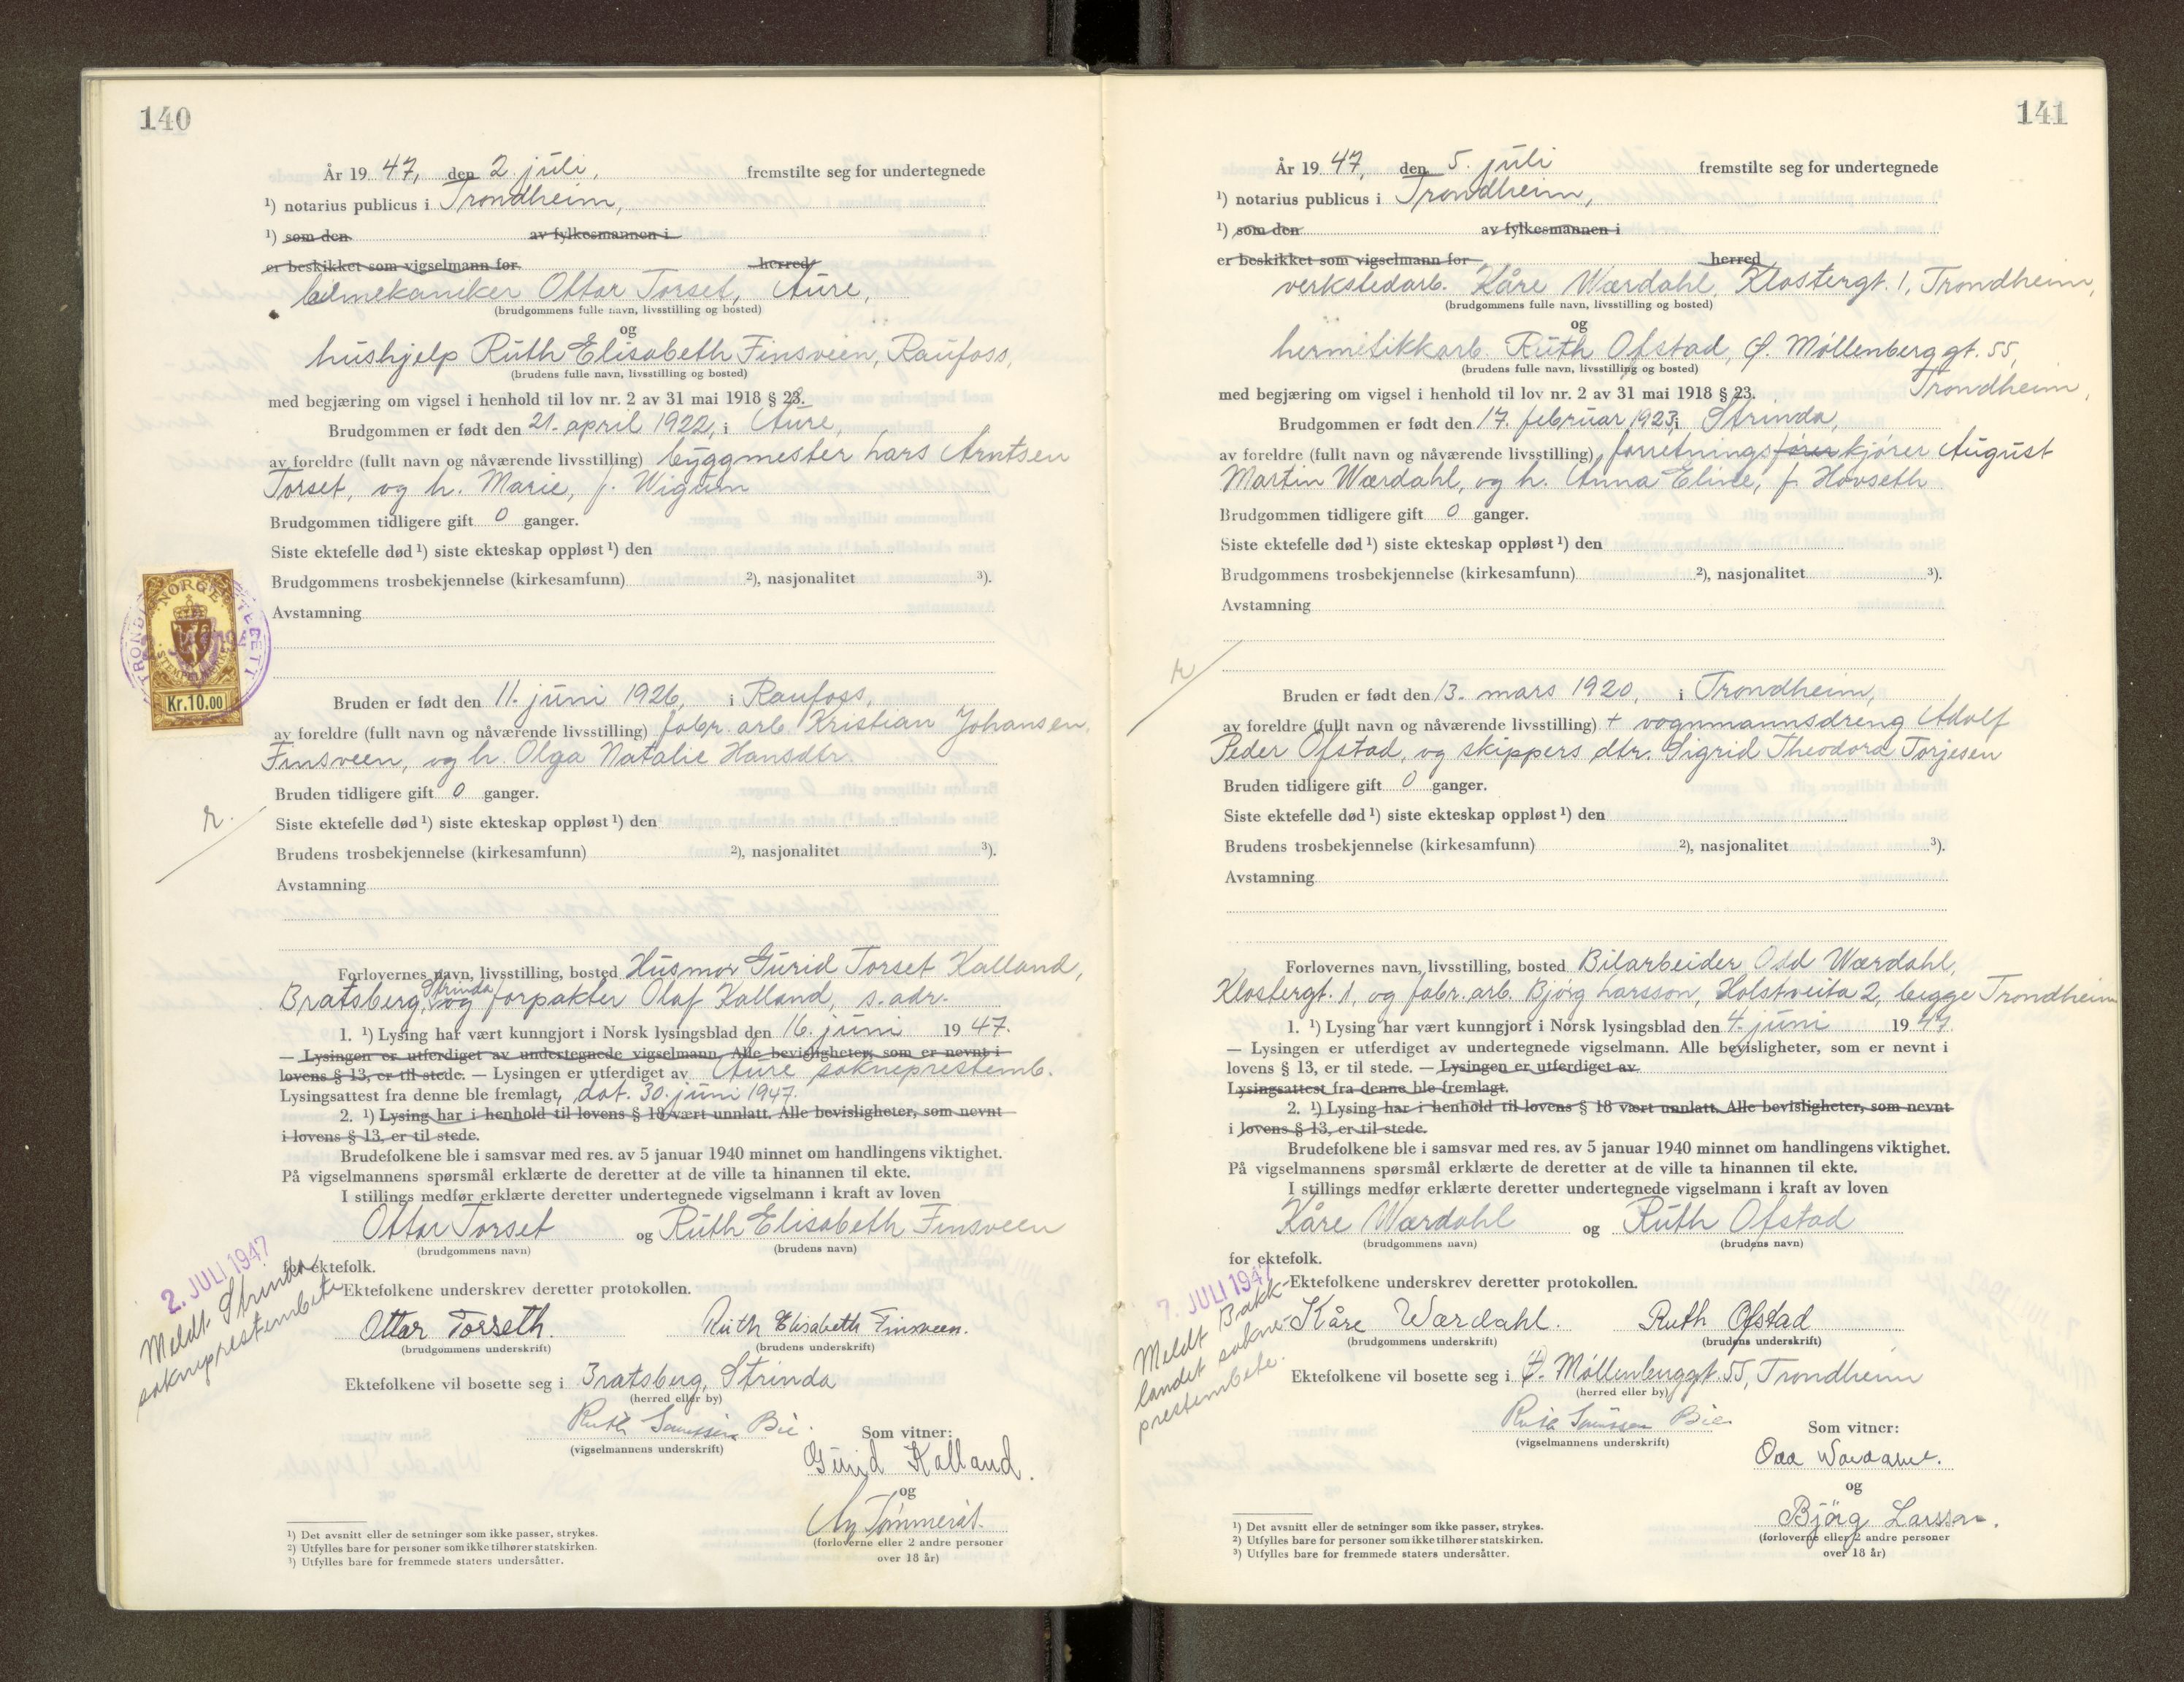 140
År 19 47, den 2. juli, fremstilte seg for undertegnede
¹) notarius publicus i Trondheim,
¹) som den av fylkesmannen i
er beskikket som vigselmann for herred
bilmekaniker Ottar Torset, Aure,
(brudgommens fulle navn, livsstilling og bosted)
og
hushjelp Ruth Elisabeth Finsveen, Raufoss,
(brudens fulle navn, livsstilling og bosted)
med begjæring om vigsel i henhold til lov nr. 2 av 31 mai 1918 § 23.
Brudgommen er født den 21. april 1922, i Aure,
av foreldre (fullt navn og nåværende livsstilling) byggmester Lars Arntsen
Torset, og h. Marie, f. Wigum
Brudgommen tidligere gift 0 ganger.
Siste ektefelle død ¹) siste ekteskap oppløst ¹) den
Brudgommens trosbekjennelse (kirkesamfunn) ²), nasjonalitet ³).
Avstamning
NORGE
STEMPELMERKE
Kr.10.00
Bruden er født den 11. juni 1926, i Raufoss,
av foreldre (fullt navn og nåværende livsstilling) fabr. arb. Kristian Johansen
Finsveen, og h. Olga Natalie Hansdtr.
Bruden tidligere gift 0 ganger.
r.
Siste ektefelle død ¹) siste ekteskap oppløst ¹) den
Brudens trosbekjennelse (kirkesamfunn) ²), nasjonalitet ³).
Avstamning
Forlovernes navn, livsstilling, bosted Husmor Gurid Torset Kalland,
Bratsberg, Strinda og forpakter Olaf Kalland, s. adr.
1. ¹) Lysing har vært kunngjort i Norsk lysingsblad den 16. juni 19 47.
— Lysingen er utferdiget av undertegnede vigselmann. Alle bevisligheter, som er nevnt i
lovens § 13, er til stede. — Lysingen er utferdiget av Aure sokneprestemb.
Lysingsattest fra denne ble fremlagt, dat. 30. juni 1947.
2. ¹) Lysing har i henhold til lovens § 18 vært unnlatt. Alle bevisligheter, som nevnt
i lovens § 13, er til stede.
Brudefolkene ble i samsvar med res. av 5 januar 1940 minnet om handlingens viktighet.
På vigselmannens spørsmål erklærte de deretter at de ville ta hinannen til ekte.
I stillings medfør erklærte deretter undertegnede vigselmann i kraft av loven
Ottar Torset og Ruth Elisabeth Finsveen
(brudgommens navn) (brudens navn)
for ektefolk.
2. JULI 1947
Meldt Strinda
sokneprestembete
Ektefolkene underskrev deretter protokollen.
Ottar Torseth. Ruth Elisabeth Finsveen.
(brudgommens underskrift) (brudens underskrift)
Ektefolkene vil bosette seg i Bratsberg, Strinda
(herred eller by)
Ruth Bie. Som vitner:
(vigselmannens underskrift)
Gurid Kalland.
og
(forloverne eller 2 andre personer
over 18 år)
¹) Det avsnitt eller de setninger som ikke passer, strykes.
²) Utfylles bare for personer som ikke tilhører statskirken.
³) Utfylles bare for fremmede staters undersåtter.
141
År 19 47, den 5. juli fremstilte seg for undertegnede
¹) notarius publicus i Trondheim,
¹) som den av fylkesmannen i
er beskikket som vigselmann for herred
verkstedarb. Kåre Wærdahl, Klostergt. 1, Trondheim,
(brudgommens fulle navn, livsstilling og bosted)
og
hermetikkarb. Ruth Ofstad, Ø. Møllenberggt. 55,
(brudens fulle navn, livsstilling og bosted)
Trondheim,
med begjæring om vigsel i henhold til lov nr. 2 av 31 mai 1918 § 23.
Brudgommen er født den 17. februar 1923, i Strinda,
av foreldre (fullt navn og nåværende livsstilling) forretningsfører kjører August
Martin Wærdahl, og h. Anna Eline, f. Hovseth
Brudgommen tidligere gift 0 ganger.
Siste ektefelle død ¹) siste ekteskap oppløst ¹) den
Brudgommens trosbekjennelse (kirkesamfunn) ²), nasjonalitet ³).
Avstamning
r
Bruden er født den 13. mars 1920, i Trondheim,
av foreldre (fullt navn og nåværende livsstilling) + vognmannsdreng Adolf
Peder Ofstad, og skippers dtr. Sigrid Theodora Torjesen
Bruden tidligere gift 0 ganger.
Siste ektefelle død ¹) siste ekteskap oppløst ¹) den
Brudens trosbekjennelse (kirkesamfunn) ²), nasjonalitet ³).
Avstamning
Forlovernes navn, livsstilling, bosted Bilarbeider Odd Wærdahl,
Klostergt. 1, og fabr. arb. Bjørg Larsson, Holstveita 2, begge Trondheim
1. ¹) Lysing har vært kunngjort i Norsk lysingsblad den 4. juni 19 47.
— Lysingen er utferdiget av undertegnede vigselmann. Alle bevisligheter, som er nevnt i
lovens § 13, er til stede. — Lysingen er utferdiget av
Lysingsattest fra denne ble fremlagt.
2. ¹) Lysing har i henhold til lovens § 18 vært unnlatt. Alle bevisligheter, som nevnt
i lovens § 13, er til stede.
Brudefolkene ble i samsvar med res. av 5 januar 1940 minnet om handlingens viktighet.
På vigselmannens spørsmål erklærte de deretter at de ville ta hinannen til ekte.
I stillings medfør erklærte deretter undertegnede vigselmann i kraft av loven
Kåre Wærdahl og Ruth Ofstad
(brudgommens navn) (brudens navn)
for ektefolk.
7. JULI 1947
Meldt Bakk-
landet sokne-
prestembete.
Ektefolkene underskrev deretter protokollen.
Kåre Wærdahl. Ruth Ofstad
(brudgommens underskrift) (brudens underskrift)
Ektefolkene vil bosette seg i Ø. Møllenberggt. 55, Trondheim
(herred eller by)
Ruth Bie. Som vitner:
(vigselmannens underskrift)
Odd Wærdahl.
og
Bjørg Larsson.
(forloverne eller 2 andre personer
over 18 år)
¹) Det avsnitt eller de setninger som ikke passer, strykes.
²) Utfylles bare for personer som ikke tilhører statskirken.
³) Utfylles bare for fremmede staters undersåtter.